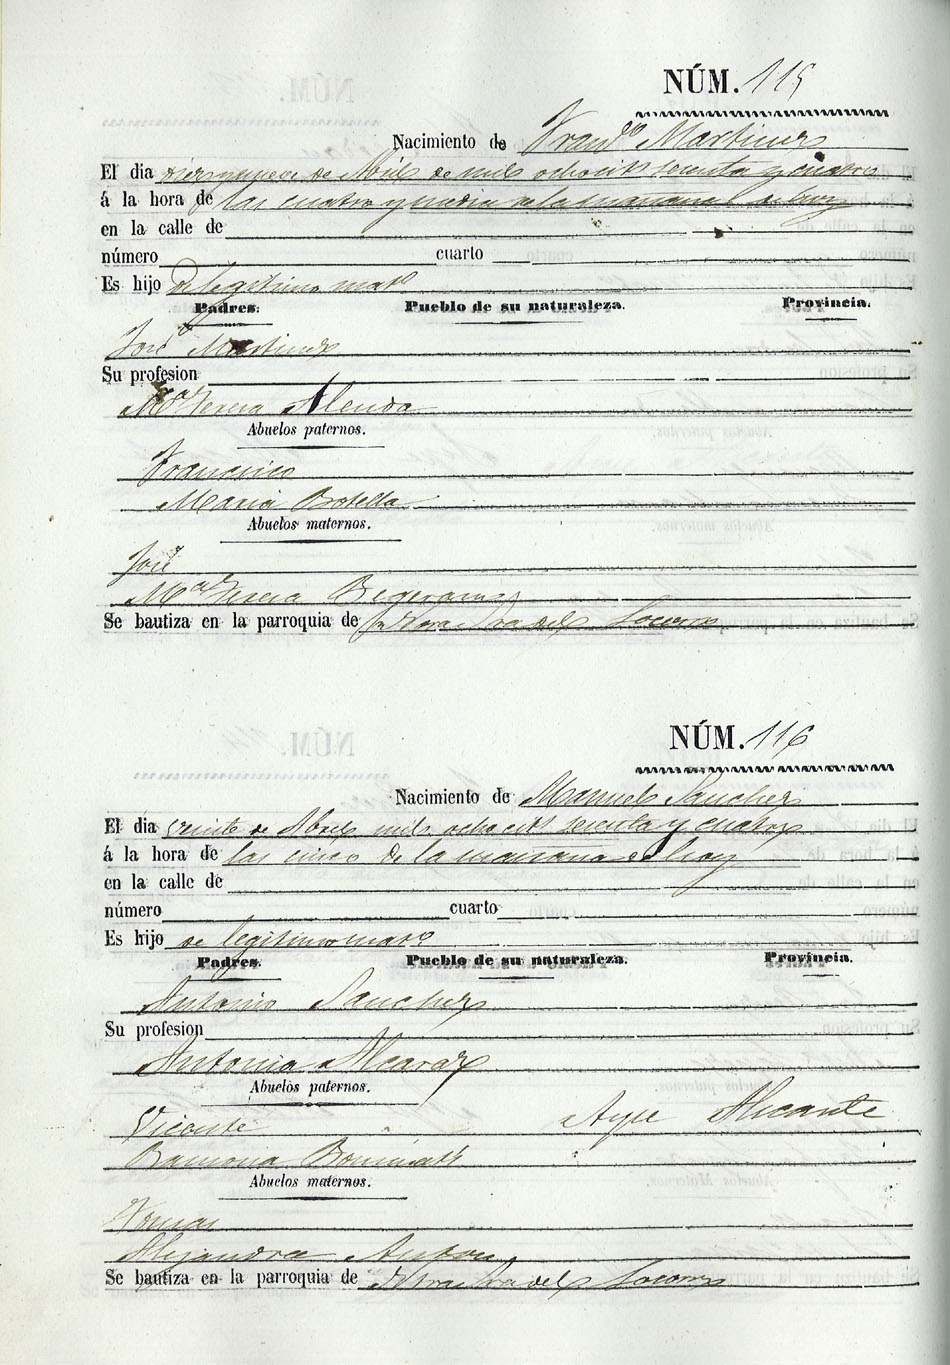 NÚM. 115
Nacimiento de Fran.co Martinez
El dia diez nueve de Abril de mil ochocits sesenta y cuatro
á la hora de las cuatro y media de la mañana de hoy
en la calle de
número cuarto
Es hijo de legítimo mato
Padres. Pueblo de su naturaleza. Provincia.
José Martinez
Su profesion
Ma Teresa Alenda
Abuelos paternos.
Francisco
Maria Botella
Abuelos maternos.
José
Ma Teresa
Se bautiza en la parroquia de Ntra Sra del Socorro
NÚM. 116
Nacimiento de Manuel Sanchez
El dia veinte de Abril mil ochocits sesenta y cuatro
á la hora de las cinco de la mañana de hoy
en la calle de
número cuarto
Es hijo de legítimo mato
Padres. Pueblo de su naturaleza. Provincia.
Antonio Sanchez
Su profesion
Antonia Alcaraz
Abuelos paternos.
Vicente Aspe Alicante
Ramona
Abuelos maternos.
Tomas
Alejandra Anton
Se bautiza en la parroquia de Ntra Sra del Socorro